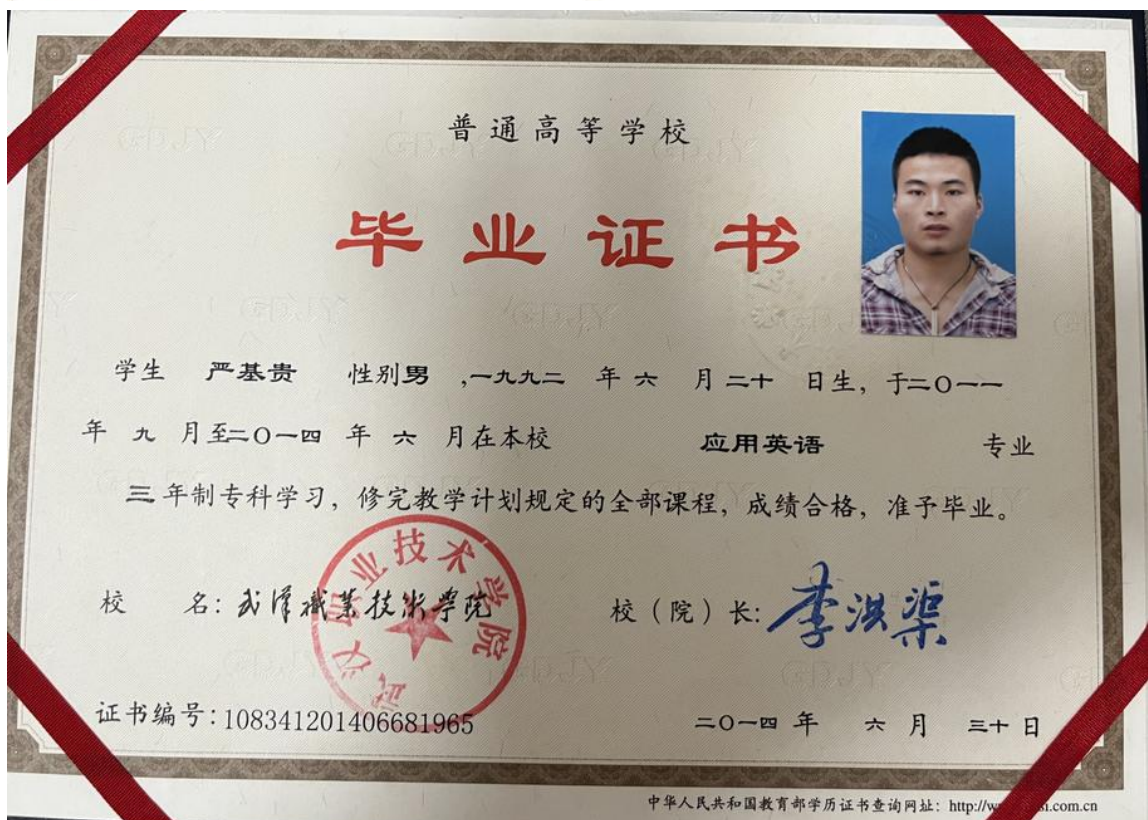 普通高等学校
毕业证书
学生 严基贵 性别男 ,一九九二 年 六 月 二十 日生，于二O一一
年 九 月至二O一四 年 六 月在本校 应用英语 专业
三 年制专科学习，修完教学计划规定的全部课程，成绩合格，准予毕业。
校 名：武汉職業技術學院 校（院）长：李洪渠
武汉职业技术学院
证书编号：108341201406681965 二O一四 年 六 月 三十 日
中华人民共和国教育部学历证书查询网址：http://w si.com.cn